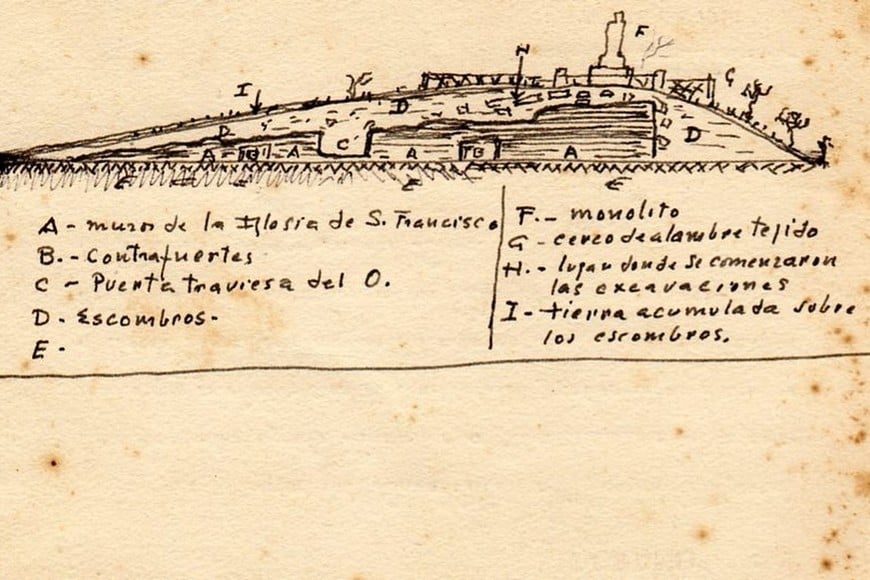 F
N
G
I
D
D
D
C
A
B
A
A
B
A
E
E
E
E
A - muros de la Iglesia de S. Francisco
B. - Contrafuertes
C - Puerta traviesa del O.
D - Escombros -
E -
F. - monolito
G - cerco de alambre tejido
H. - lugar donde se comenzaron
las excavaciones
I - tierra acumulada sobre
los escombros.